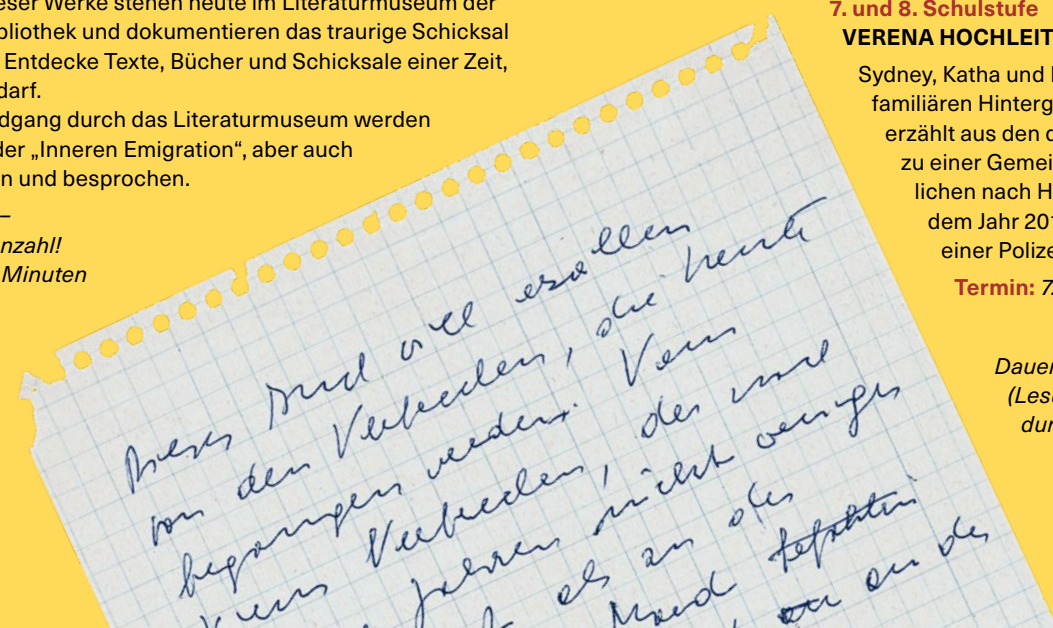 ieser Werke stehen heute im Literaturmuseum der
bliothek und dokumentieren das traurige Schicksal
Entdecke Texte, Bücher und Schicksale einer Zeit,
darf.
dgang durch das Literaturmuseum werden
der „Inneren Emigration“, aber auch
n und besprochen.
–
nzahl!
Minuten
7. und 8. Schulstufe
VERENA HOCHLEIT
Sydney, Katha und
familiären Hinterg
erzählt aus den
zu einer Gemei
lichen nach H
dem Jahr 20
einer Polize
Termin: 7
Dauer
(Les
du
Dieses Buch will erzählen
von den Verbrechen, die heute
begangen werden. Vom
Verbrechen, des
Jahren nicht weniger
als an der
Mord
an der